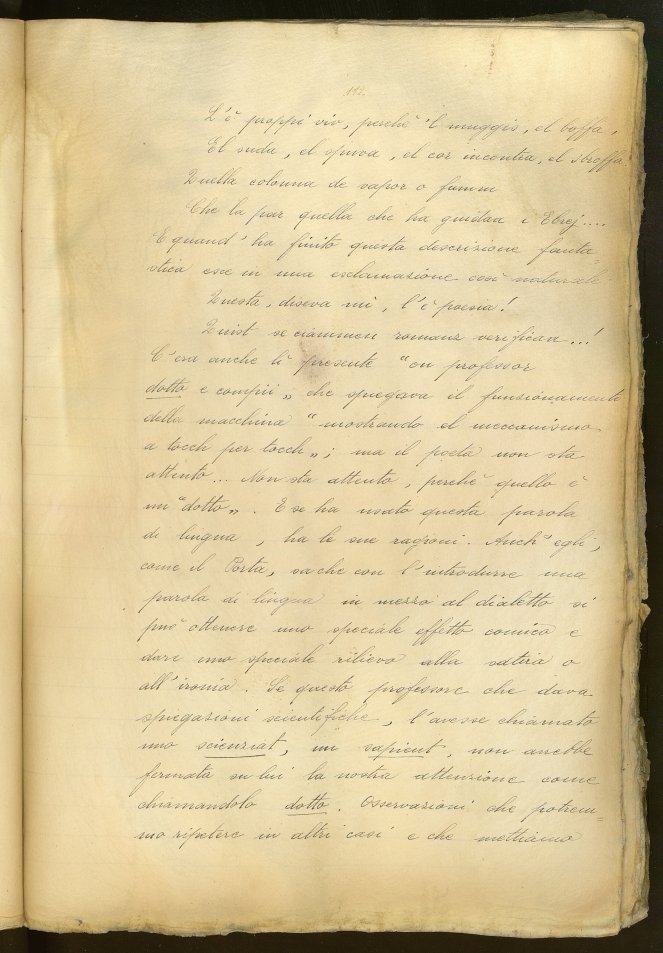 112.
L'è proppi viv, perchè 'l muggis, el boffa,
El suda, el spuva, el cor incontra, el sbroffa
Quella colonna de vapor o fumm
Che la par quella che ha guidaa i Ebrej....
E quand' ha finito questa descrizione fanta=
stica esce in una esclamazione così naturale
Questa, diseva mi, l'è poesia!
Quist se ciammen romanz verificaa...!
C'era anche lì presente "on professor
dotto e compii„ che spiegava il funzionamento
della macchina "mostrando el meccanismo
a tocch per tocch„; ma il poeta non sta
attento... Non sta attento, perchè quello è
un "dotto„. E se ha usato questa parola
di lingua, ha le sue ragioni. Anch' egli,
come il Porta, sa che con l'introdurre una
parola di lingua in mezzo al dialetto si
può ottenere uno speciale effetto comico e
dare uno speciale rilievo alla satira o
all'ironia. Se questo professore che dava
spiegazioni scientifiche, l'avesse chiamato
uno scienziat, un sapient, non avrebbe
fermata su lui la nostra attenzione come
chiamandolo dotto. Osservazioni che potrem=
mo ripetere in altri casi e che mettiamo